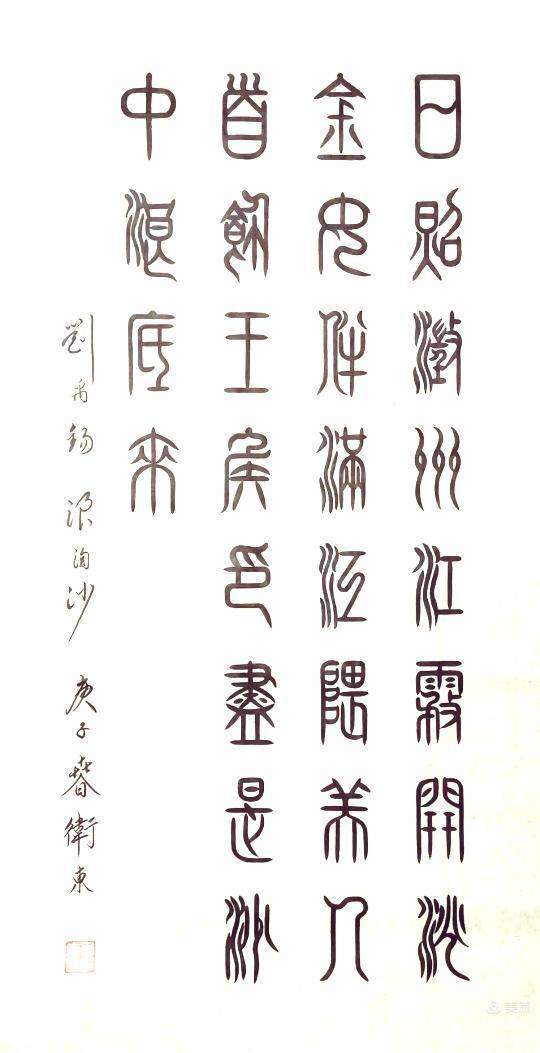 日照澂州江霧開淘
金女伴滿江隈美人
首飾王侯印盡是沙
中浪底來
劉禹錫 浪淘沙 庚子春 衛東
美篇